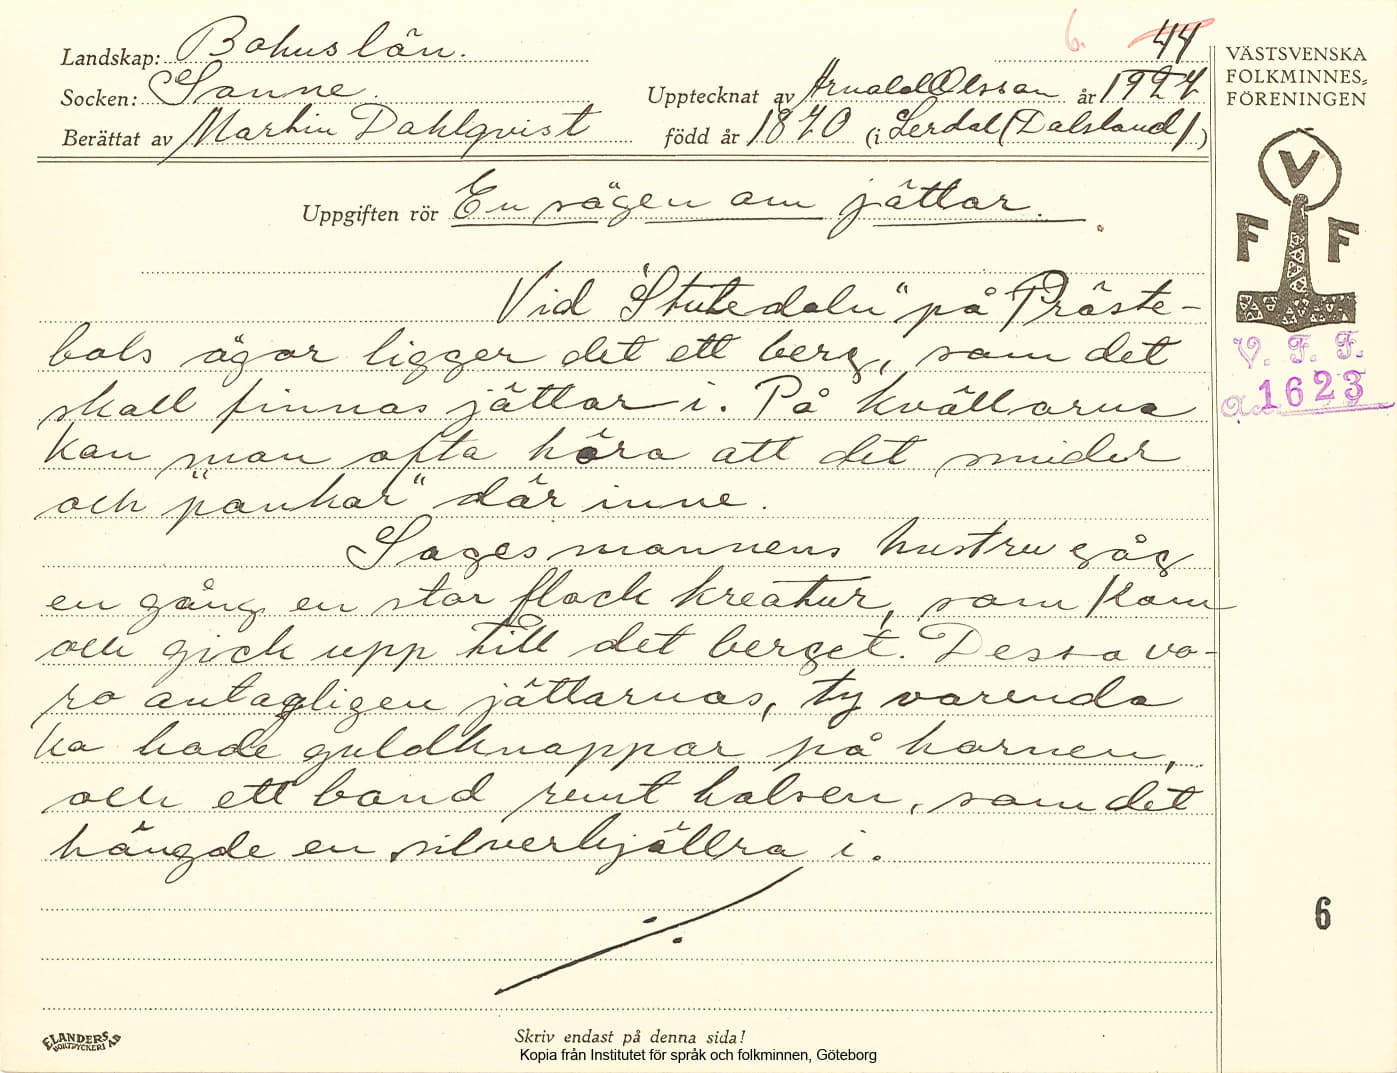 6. 44
Landskap: Bohuslän.
Socken: Sanne.
Upptecknat av Arnold Olsson år 1927
Berättat av Martin Dahlqvist
född år 1870 (i Lerdal (Dalsland))
Uppgiften rör En sägen om jättar.
Vid "Stutedaln" på Präste-
bols ägor ligger det ett berg, som det
skall finnas jättar i. På kvällarna
kan man ofta höra att det smider
och "pankar" där inne.
Sagesmannens hustru såg
en gång en stor flock kreatur, som kom
och gick upp till det berget. Dessa vo-
ro antagligen jättarnas, ty varenda
ko hade guldknappar på hornen,
och ett band runt halsen, som det
hängde en silverbjällra i.
VÄSTSVENSKA
FOLKMINNES-
FÖRENINGEN
V
F F
V. F. F.
1623
6
ELANDERS
BOKTRYCKERI AB
Skriv endast på denna sida!
Kopia från Institutet för språk och folkminnen, Göteborg